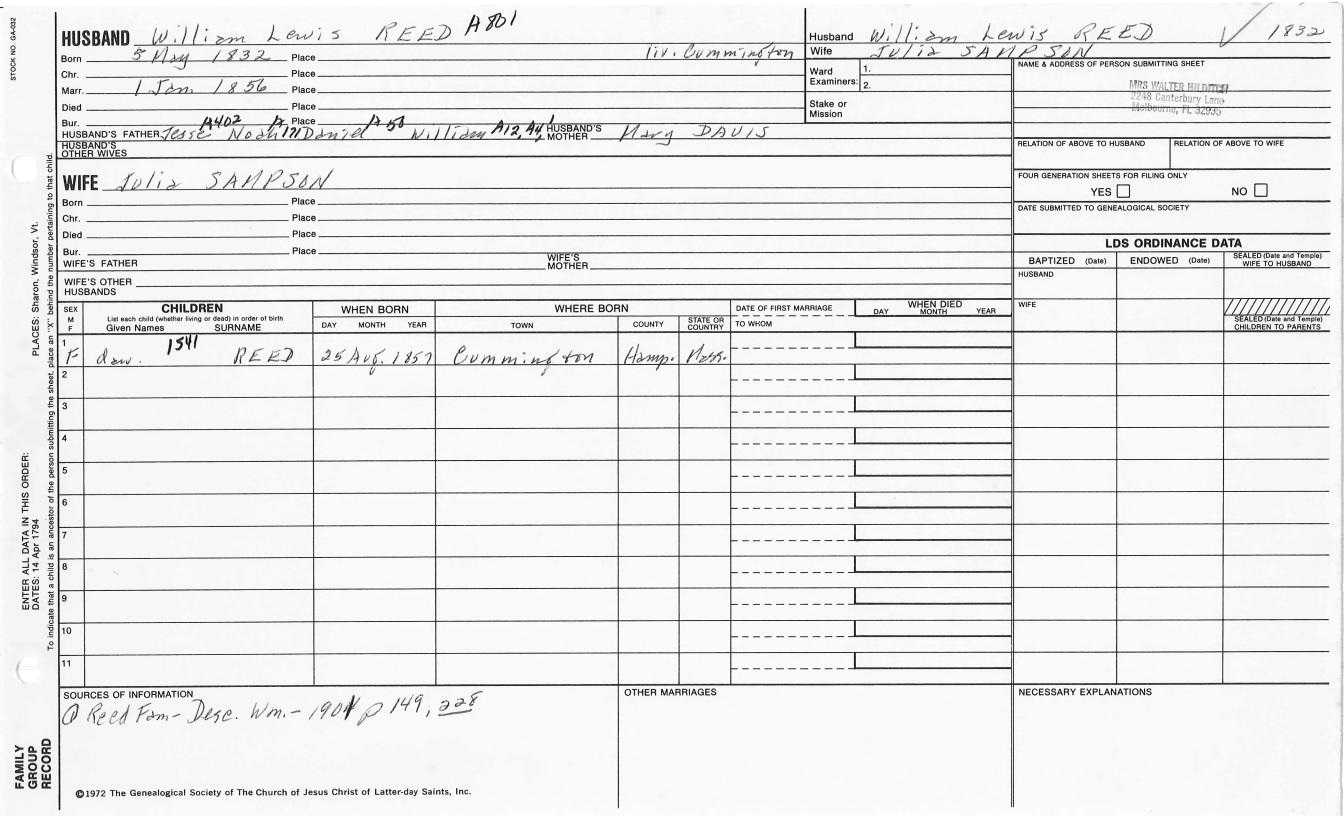 STOCK NO. GA-032
PLACES: Sharon, Windsor, Vt.
ENTER ALL DATA IN THIS ORDER:
DATES: 14 Apr 1794
To indicate that a child is an ancestor of the person submitting the sheet, place an "X" behind the number pertaining to that child.
FAMILY
GROUP
RECORD
HUSBAND William Lewis REED A801
Born 5 May 1832 Place liv. Cummington
Chr. Place
Marr. 1 Jan 1856 Place
Died Place
Bur. Place
A402 A A50
HUSBAND'S FATHER Jesse Noah 171 Daniel William A12, A4, 1 HUSBAND'S MOTHER Mary DAVIS
HUSBAND'S
OTHER WIVES
WIFE Julia SAMPSON
Born Place
Chr. Place
Died Place
Bur. Place
WIFE'S FATHER WIFE'S MOTHER
WIFE'S OTHER
HUSBANDS
Husband William Lewis REED √ 1832
Wife Julia SAMPSON
Ward
Examiners: 1.
2.
Stake or
Mission
NAME & ADDRESS OF PERSON SUBMITTING SHEET
MRS WALTER
2248 Canterbury Lane
Melbourne, FL 32935
RELATION OF ABOVE TO HUSBAND RELATION OF ABOVE TO WIFE
FOUR GENERATION SHEETS FOR FILING ONLY
YES NO
DATE SUBMITTED TO GENEALOGICAL SOCIETY
LDS ORDINANCE DATA
BAPTIZED (Date) ENDOWED (Date) SEALED (Date and Temple) WIFE TO HUSBAND
HUSBAND
WIFE
SEALED (Date and Temple) CHILDREN TO PARENTS
SEX M F CHILDREN WHEN BORN WHERE BORN DATE OF FIRST MARRIAGE WHEN DIED
List each child (whether living or dead) in order of birth DAY MONTH YEAR
Given Names SURNAME DAY MONTH YEAR TOWN COUNTY STATE OR COUNTRY TO WHOM
1 F dau. 1541 REED 25 Aug. 1857 Cummington Hamp. Mass.
2
3
4
5
6
7
8
9
10
11
SOURCES OF INFORMATION OTHER MARRIAGES NECESSARY EXPLANATIONS
① Reed Fam- Desc. Wm.- 1901 p 149, 228
©1972 The Genealogical Society of The Church of Jesus Christ of Latter-day Saints, Inc.